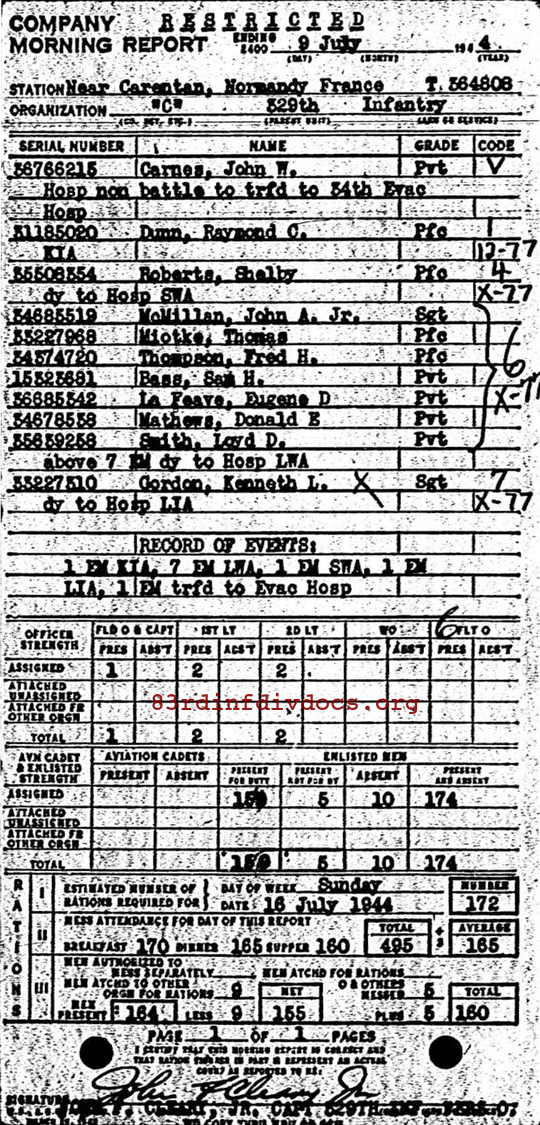 COMPANY RESTRICTED
MORNING REPORT ENDING 2400 9 July 194 4
(DAY) (MONTH) (YEAR)
STATION Near Carentan, Normandy France T.364808
ORGANIZATION "C" 329th Infantry
(CO. DET, ETC.) (PARENT UNIT) (ARM OR SERVICE)
SERIAL NUMBER NAME GRADE CODE
36766215 Carnes, John W. Pvt V
Hosp non battle to trfd to 34th Evac
Hosp
31185020 Dunn, Raymond C. Pfc 1
KIA 12-77
35508354 Roberts, Shelby Pfc 4
dy to Hosp SWA X-77
34685519 McMillan, John A. Jr. Sgt
33227968 Miotke, Thomas Pfc
34374720 Thompson, Fred H. Pfc 6
15323681 Bass, Sam H. Pvt X-77
36685342 La Feave, Eugene D Pvt
34678538 Mathews, Donald E Pvt
35639258 Smith, Loyd D. Pvt
above 7 EM dy to Hosp LWA
33227310 Gordon, Kenneth L. X Sgt 7
dy to Hosp LIA X-77
RECORD OF EVENTS:
1 EM KIA, 7 EM LWA, 1 EM SWA, 1 EM
LIA, 1 EM trfd to Evac Hosp
OFFICER STRENGTH FLD O & CAPT 1ST LT 2D LT WO 6 FLT O
PRES ABS'T PRES ABS'T PRES ABS'T PRES ABS'T PRES ABS'T
ASSIGNED 1 2 2
ATTACHED UNASSIGNED
ATTACHED FR OTHER ORGN
83rdinfdivdocs.org
TOTAL 1 2 2
AVN CADET & ENLISTED STRENGTH AVIATION CADETS ENLISTED MEN
PRESENT ABSENT PRESENT FOR DUTY PRESENT NOT FOR DY ABSENT PRESENT AND ABSENT
ASSIGNED 159 5 10 174
ATTACHED UNASSIGNED
ATTACHED FR OTHER ORGN
TOTAL 159 5 10 174
RATIONS
I ESTIMATED NUMBER OF RATIONS REQUIRED FOR DAY OF WEEK Sunday NUMBER
DATE 16 July 1944 172
II MESS ATTENDANCE FOR DAY OF THIS REPORT TOTAL AVERAGE
BREAKFAST 170 DINNER 165 SUPPER 160 495 ÷ 3 165
III MEN AUTHORIZED TO MESS SEPARATELY MEN ATCHD FOR RATIONS
MEN ATCHD TO OTHER ORGN FOR RATIONS 9 NET O & OTHERS MESSED 5 TOTAL
MEN PRESENT 164 LESS 9 155 PLUS 5 160
PAGE 1 OF 1 PAGES
I CERTIFY THAT THIS MORNING REPORT IS CORRECT AND
THAT RATION FIGURES IN PART III REPRESENT AN ACTUAL
COUNT AS REPORTED TO ME:
John F Cleary Jr
SIGNATURE JOHN F. CLEARY, JR. CAPT 329TH INF PERS O.